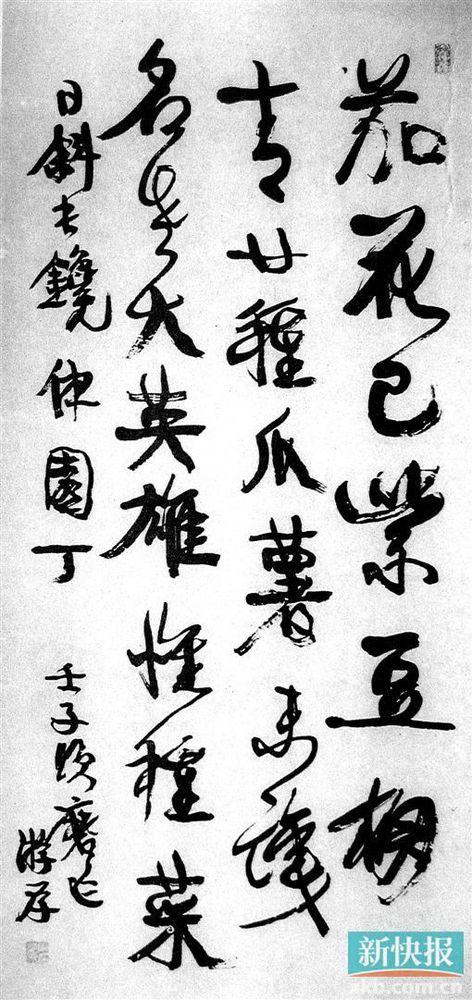 茄花已紫豆棚
青廿種瓜薯未識
名老大英雄惟種菜
日斜長鑱伴園丁
壬子須磨作
游存
新快报
xkb.com.cn